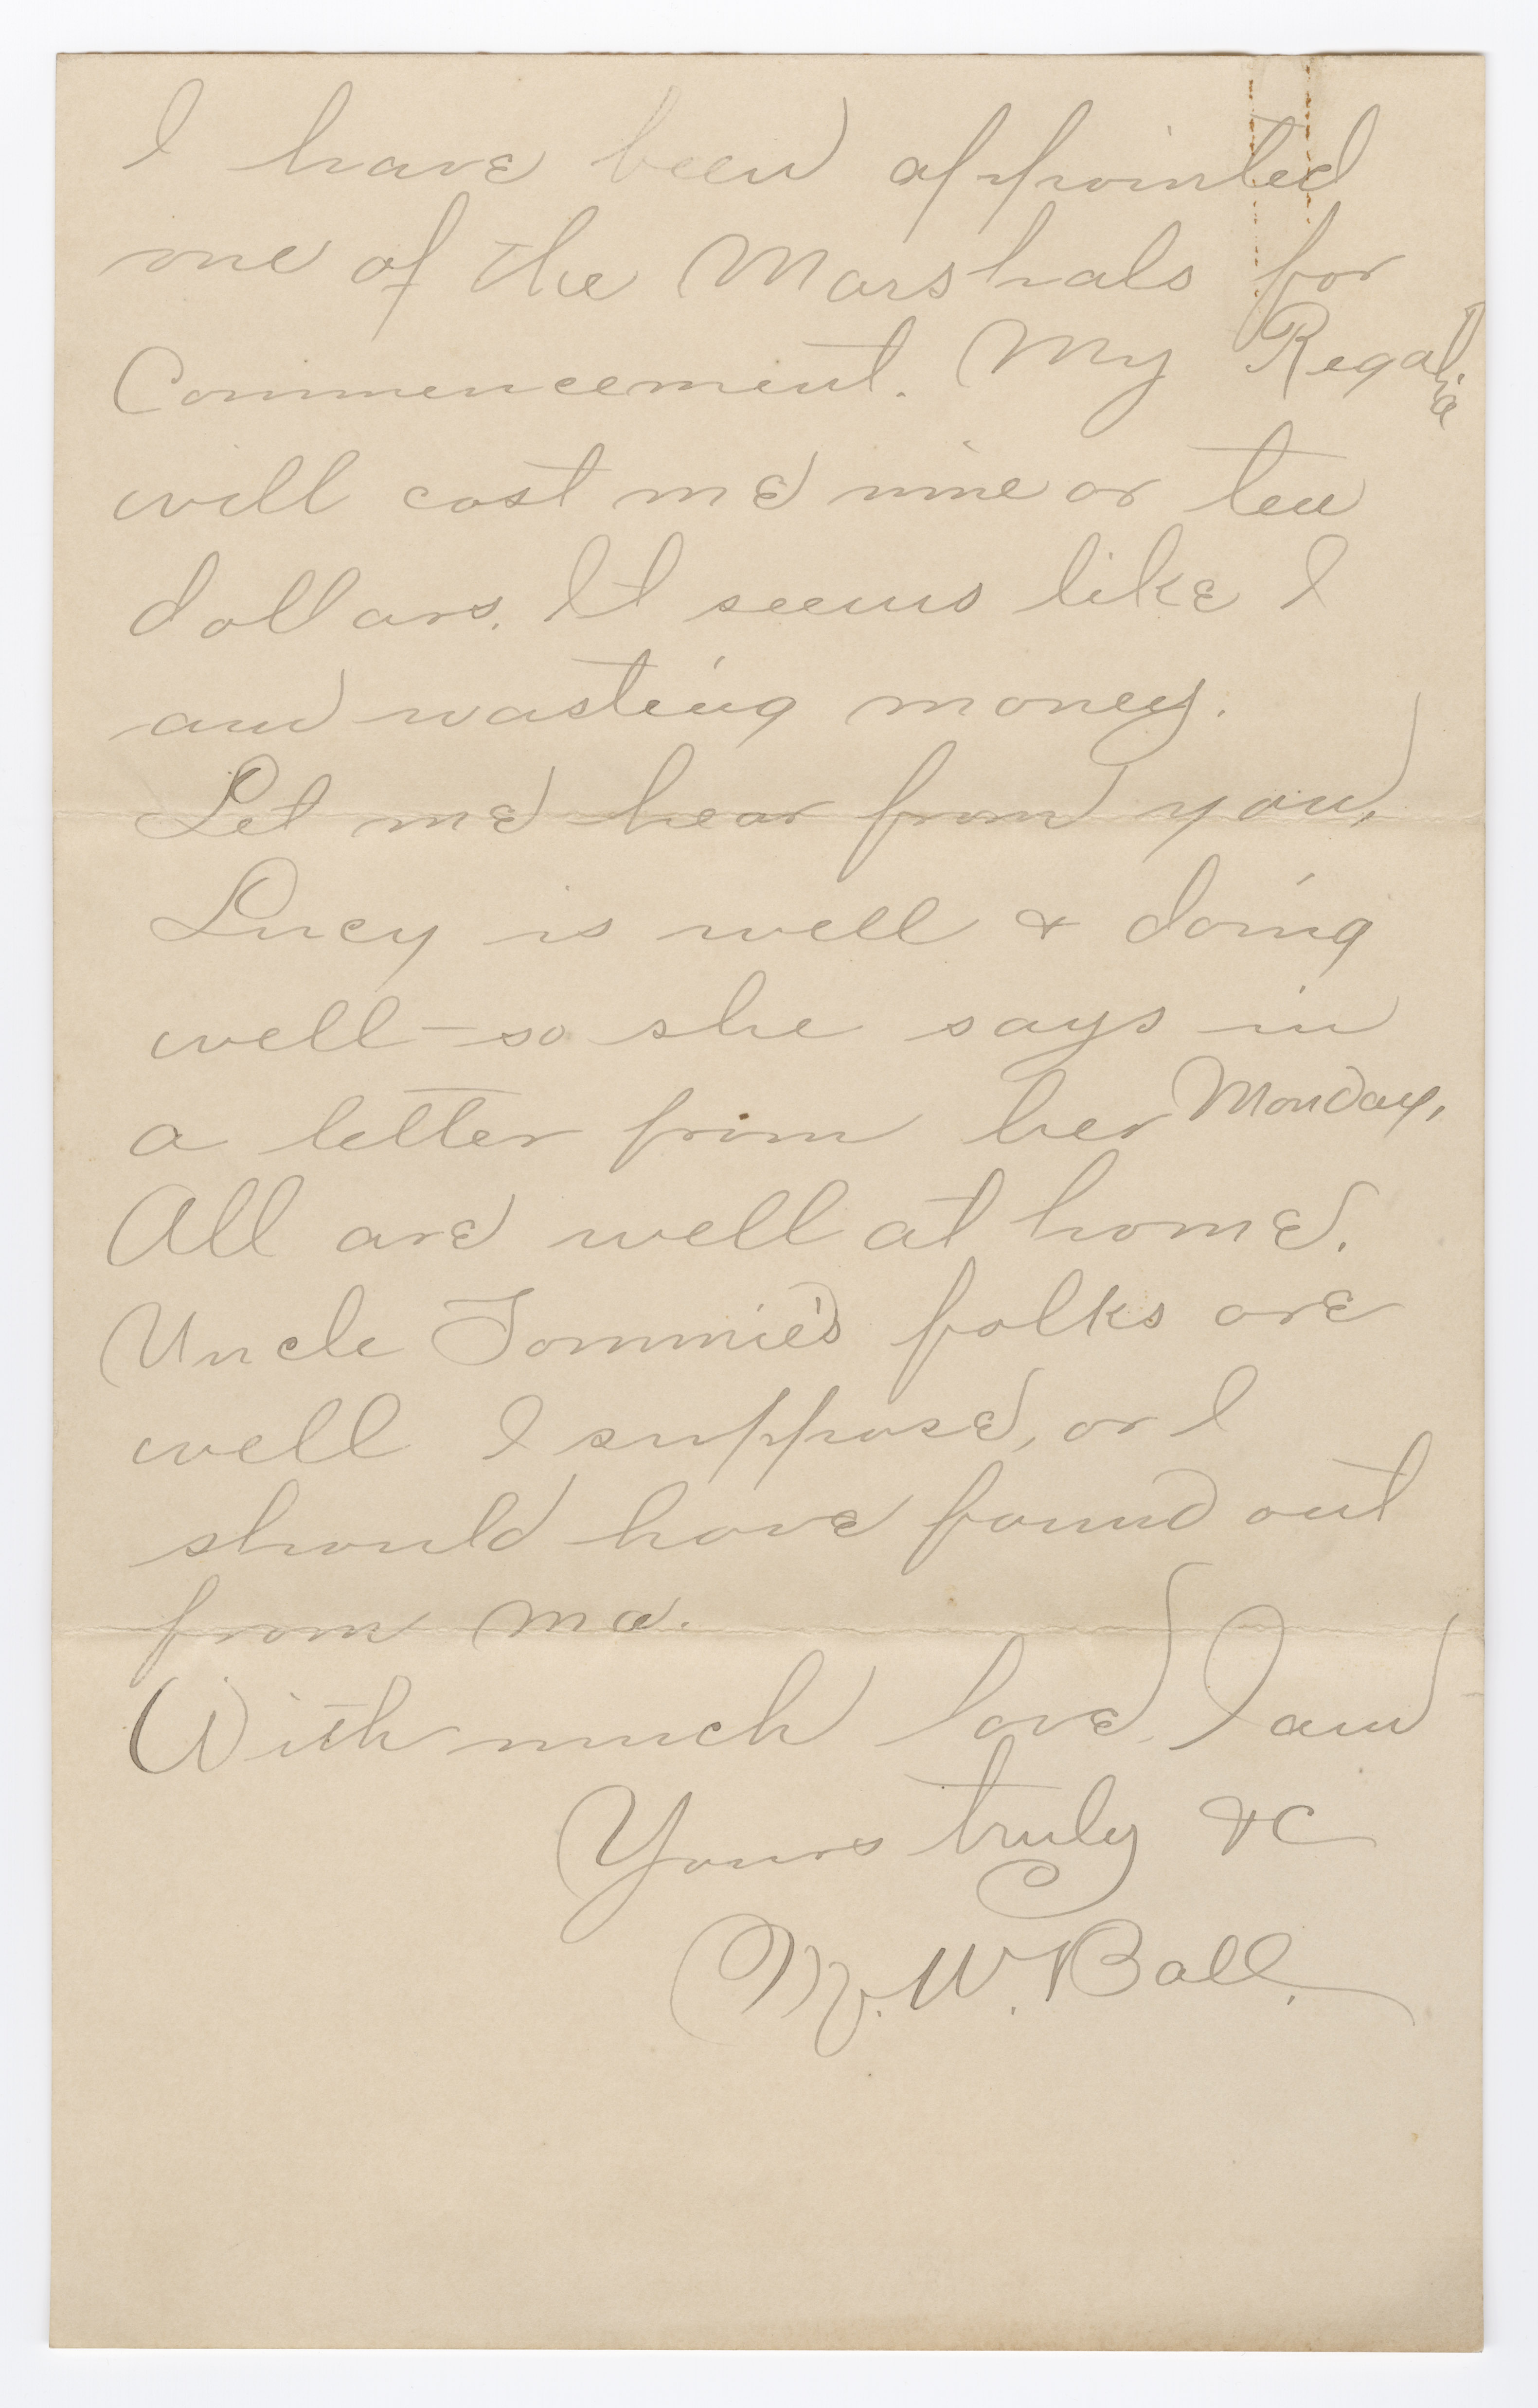 I have been appointed
one of the Marshals for
Commencement. My Regalia
will cost me nine or ten
dollars. It seems like I
am wasting money.
Let me hear from you.
Lucy is well & doing
well - so she says in
a letter from her Monday.
All are well at home.
Uncle Tommie's folks are
well I suppose, or I
should have found out
from Ma.
With much love I am
Yours truly &c
M. W. Ball.